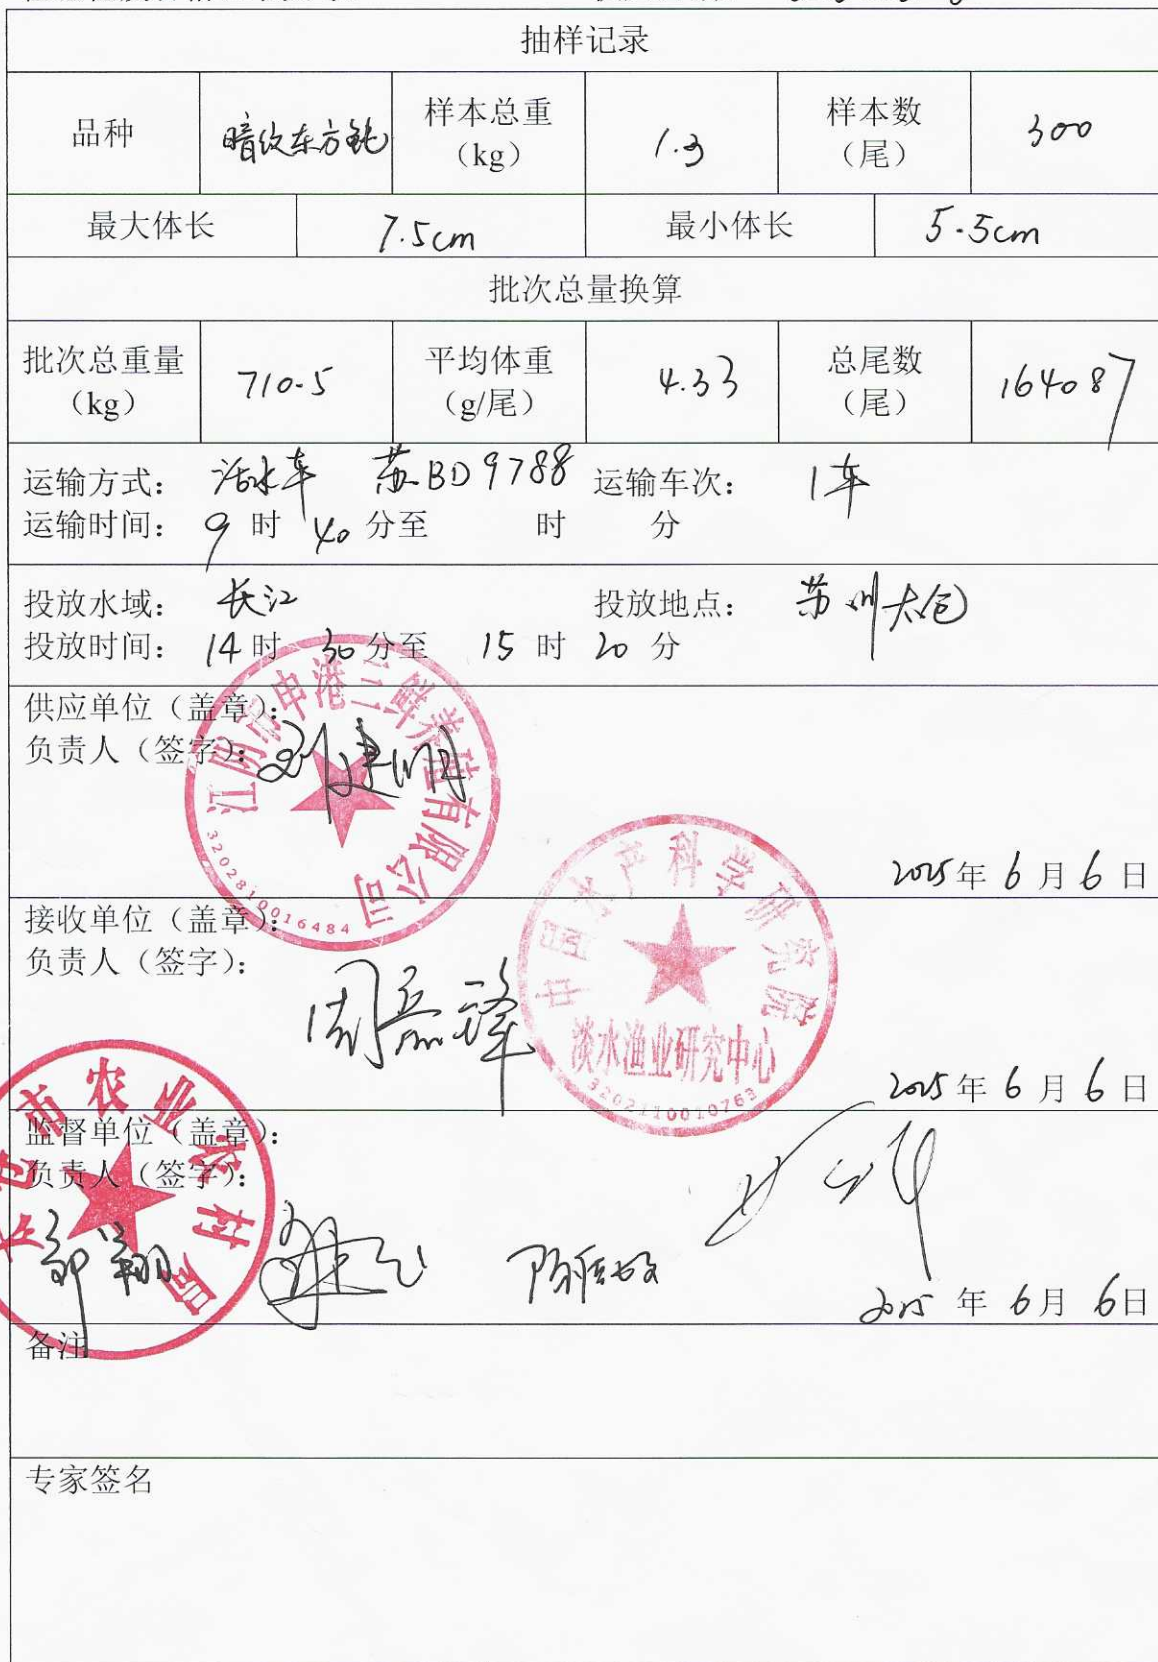 抽样记录
品种 暗纹东方鲀 样本总重（kg） 1.3 样本数（尾） 300
最大体长 7.5cm 最小体长 5.5cm
批次总量换算
批次总重量（kg） 710.5 平均体重（g/尾） 4.33 总尾数（尾） 164087
运输方式： 活水车 苏BD9788 运输车次： 1车
运输时间： 9 时 40 分至 时 分
投放水域： 长江 投放地点： 苏州太仓
投放时间： 14 时 30 分至 15 时 20 分
供应单位（盖章）：
负责人（签字）： 刘建明
江阴市申港三鲜养殖有限公司
3202810016484
2025年 6 月 6 日
接收单位（盖章）：
负责人（签字）：
中国水产科学研究院
淡水渔业研究中心
3202110010763
2025年 6 月 6 日
监督单位（盖章）：
负责人（签字）：
太仓市农业农村局
2025 年 6月 6日
备注
专家签名